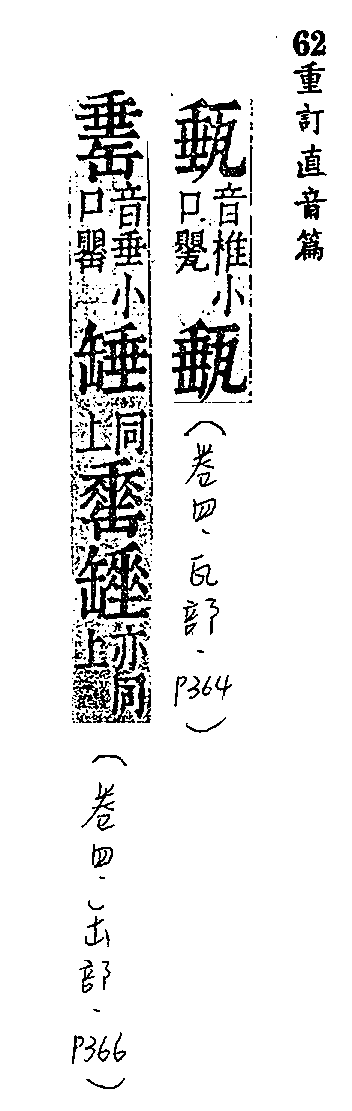 62重訂直音篇
甀音椎小口甖甀
(卷四、瓦部、P364)
音垂小口罌
同上
亦同上
(卷四、缶部、P366)